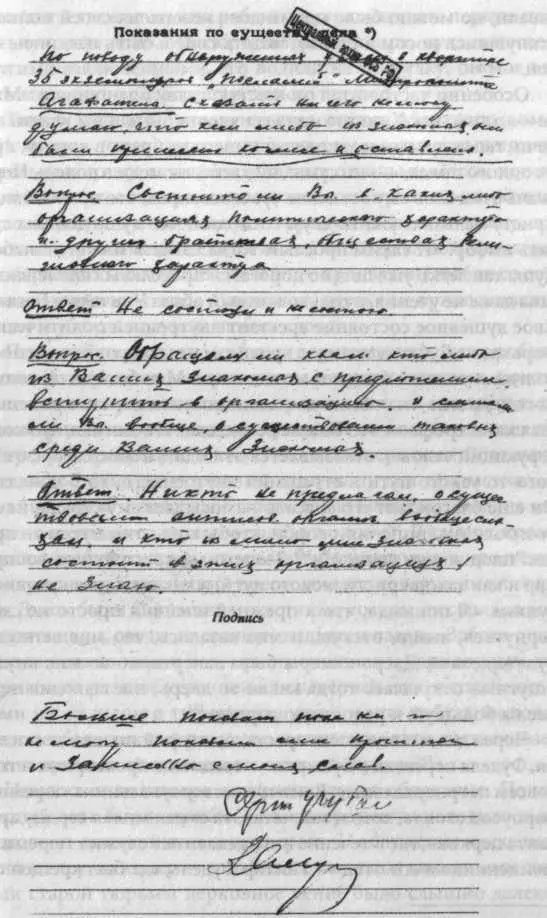 Показания по существу дела *)
По поводу обнаруженных у меня в квартире
35 экземпляров "посланий" Митрополита
Агафангела, сказать ничего не могу
думаю, что кем либо из знакомых мне
были принесены ко мне и оставлены.
Вопрос. Состоите ли Вы в каких либо
организациях политического характера
и др. других братствах, обществах рели-
гиозного характера
Ответ Не состоял и не состою.
Вопрос. Обращался ли к вам кто либо
из Ваших знакомых с предложением
вступить в организацию. и слышали
ли Вы вообще о существовании таковых
среди Ваших знакомых.
Ответ. Никто не предлагал, о сущес-
твовании
и кто из моих знакомых
состоит в этих организациях,
не знаю.
Подпись
Больше показать пока ни чего
не могу показания мне прочитаны
и записано с моих слов.